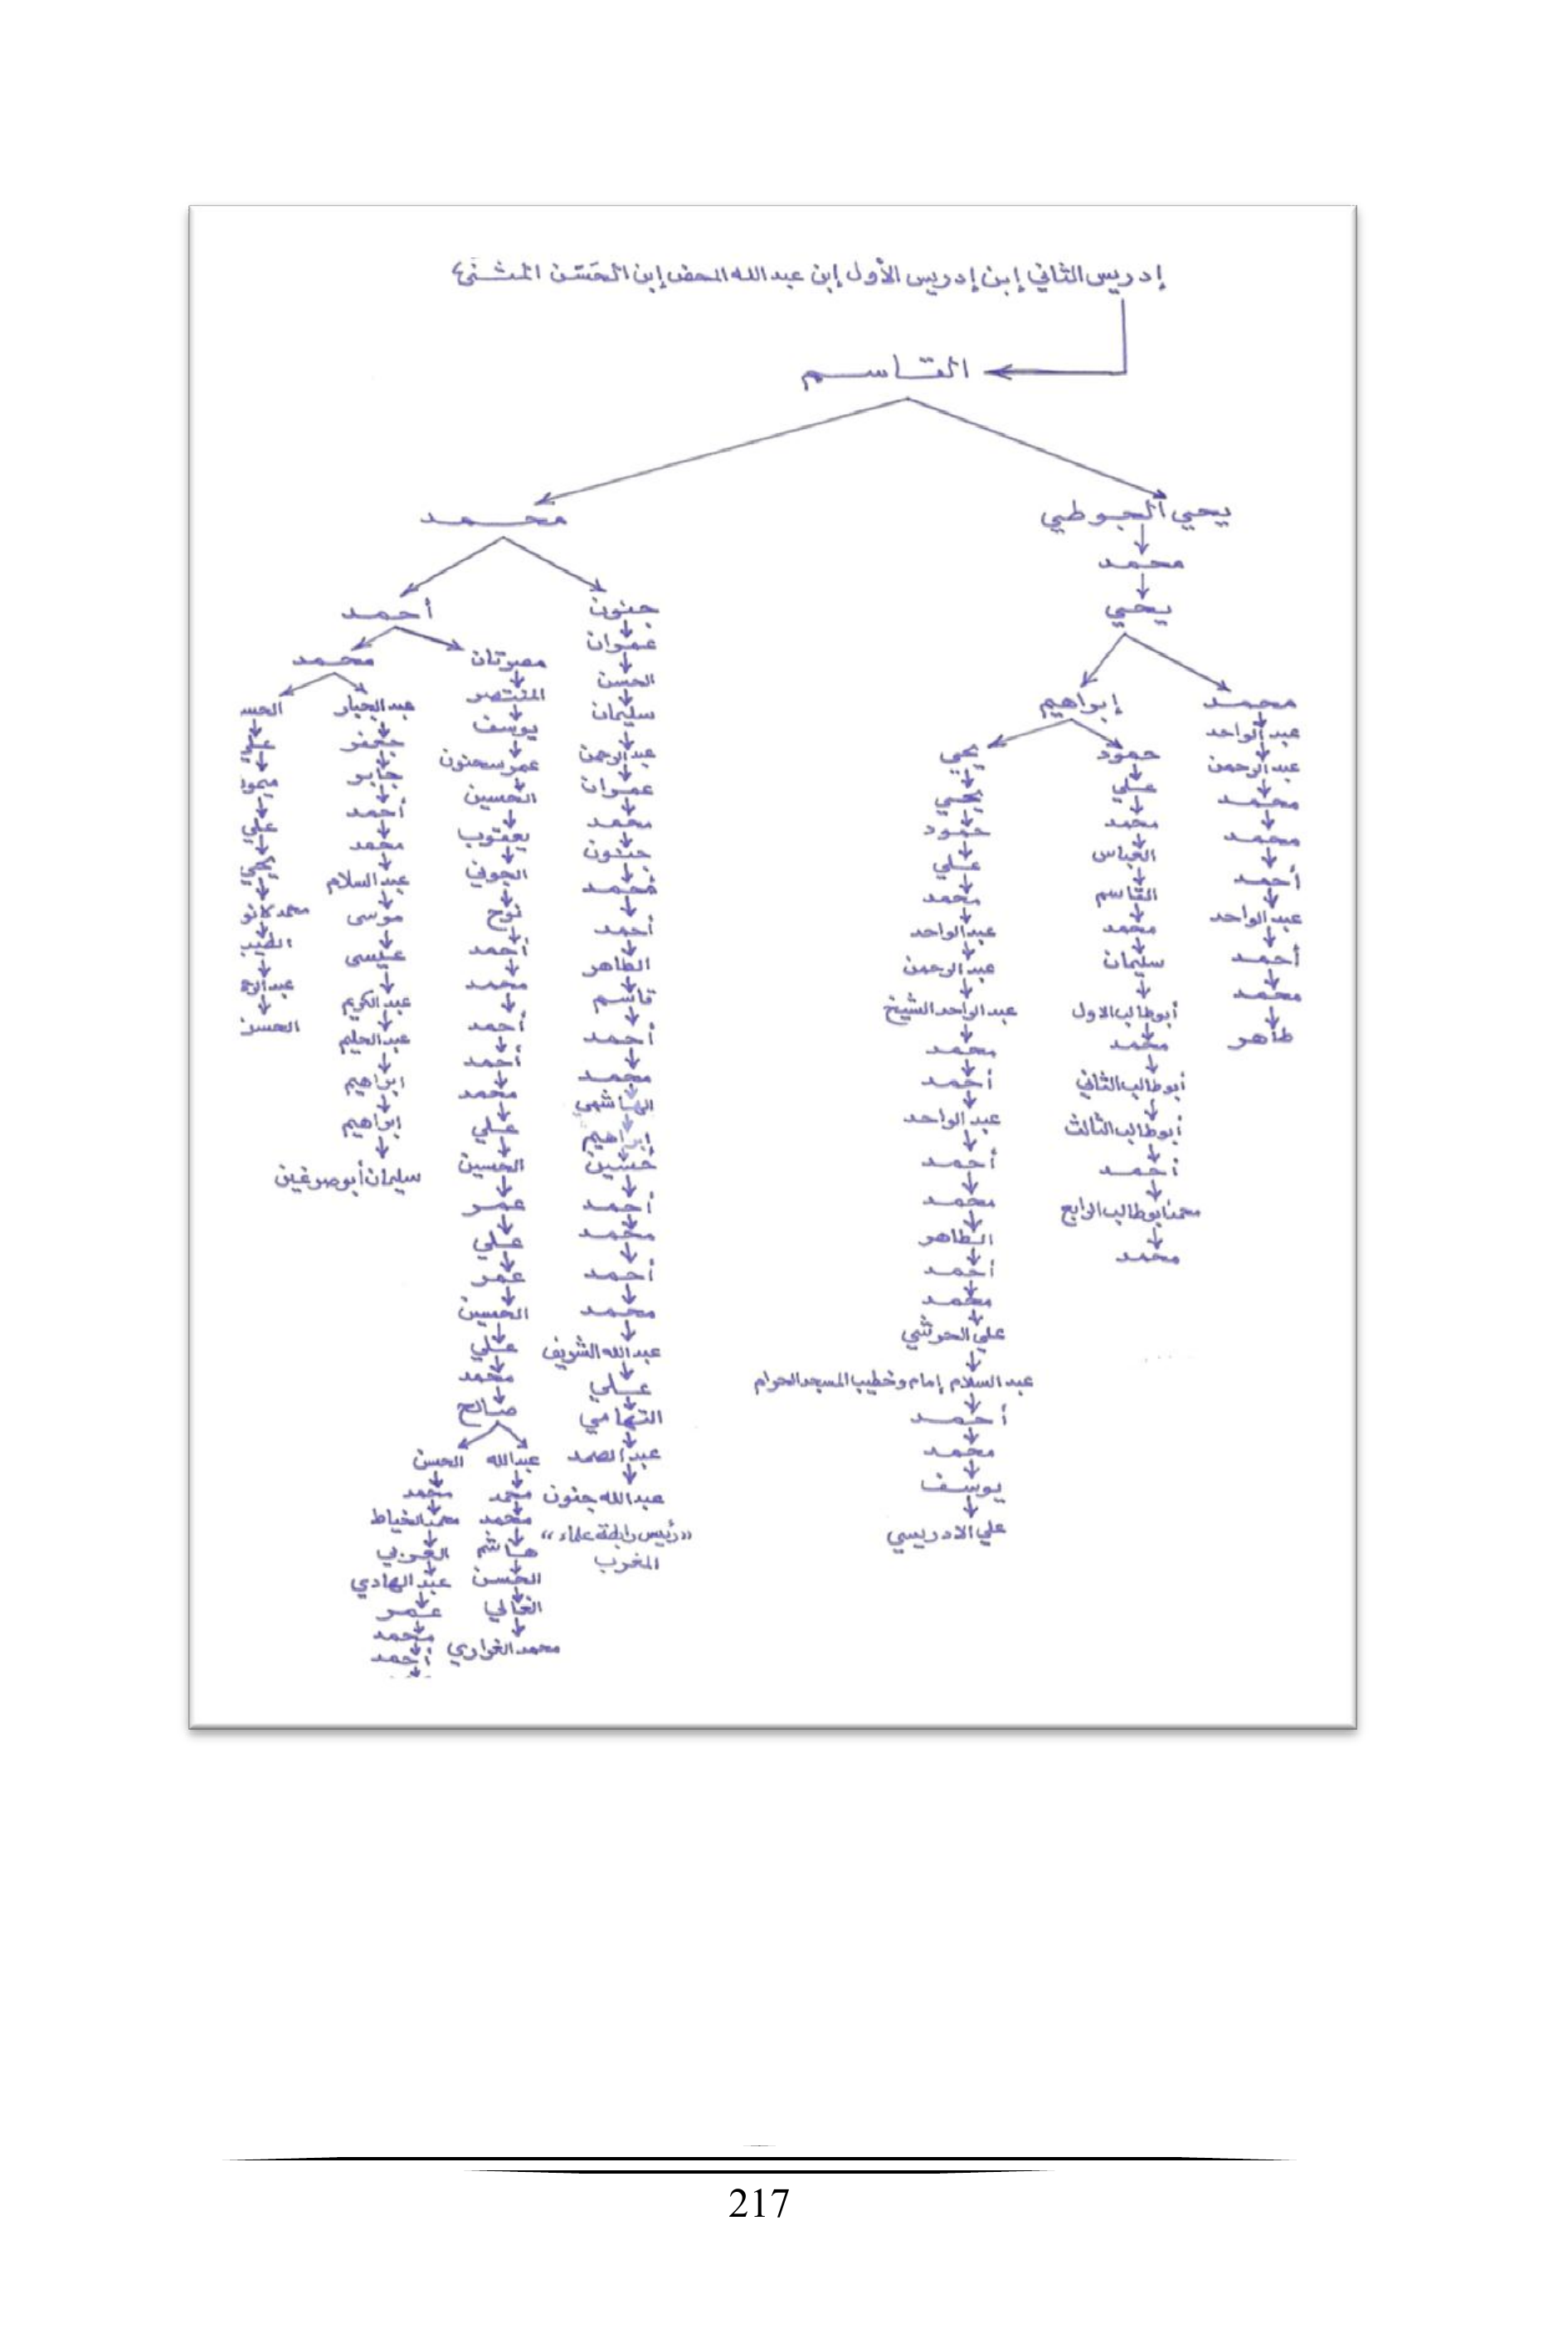 إدريس الثاني إبن إدريس الأول إبن عبد الله المحض إبن الحسن المثنى
القاسم
يحيي الجوطي
محمد
يحيي
محمد
عبد الواحد
عبد الرحمن
محمد
محمد
أحمد
عبد الواحد
أحمد
محمد
طاهر
إبراهيم
حمود
علي
محمد
العباس
القاسم
محمد
سليمان
أبو طالب الاول
محمد
أبو طالب الثاني
أبو طالب الثالث
أحمد
محمد أبو طالب الرابع
محمد
يحيي
يحيي
حمود
علي
محمد
عبد الواحد
عبد الرحمن
عبد الواحد الشيخ
محمد
أحمد
عبد الواحد
أحمد
محمد
الطاهر
أحمد
محمد
علي الحرشي
عبد السلام إمام وخطيب المسجد الحرام
أحمد
محمد
يوسف
علي الادريسي
محمد
جنون
عمران
الحسن
سليمان
عبد الرحمن
عمران
محمد
جنون
محمد
أحمد
الطاهر
قاسم
أحمد
محمد
الهاشمي
إبراهيم
حسين
أحمد
محمد
أحمد
محمد
عبد الله الشريف
علي
التهامي
عبد الصمد
عبد الله جنون
«رئيس رابطة علماء»
المغرب
أحمد
مصرتان
المنتصر
يوسف
عمر سحنون
الحسين
يعقوب
الجوني
نوح
أحمد
محمد
أحمد
أحمد
محمد
علي
الحسين
عمر
علي
عمر
الحسين
علي
محمد
صالح
عبد الله
محمد
محمد
هاشم
الحسن
الغالي
محمد الغواري
الحسن
محمد
محمد الخياط
العربي
عبد الهادي
عمر
محمد
أحمد
محمد
عبد الجبار
جعفر
جابر
أحمد
محمد
عبد السلام
موسى
عيسى
عبد الكريم
عبد الحليم
ابراهيم
ابراهيم
سليمان أبو صوغين
الحسـ
علي
ميمو
علي
يحيي
محمد كانو
الطيب
عبد الرحـ
الحسن
217